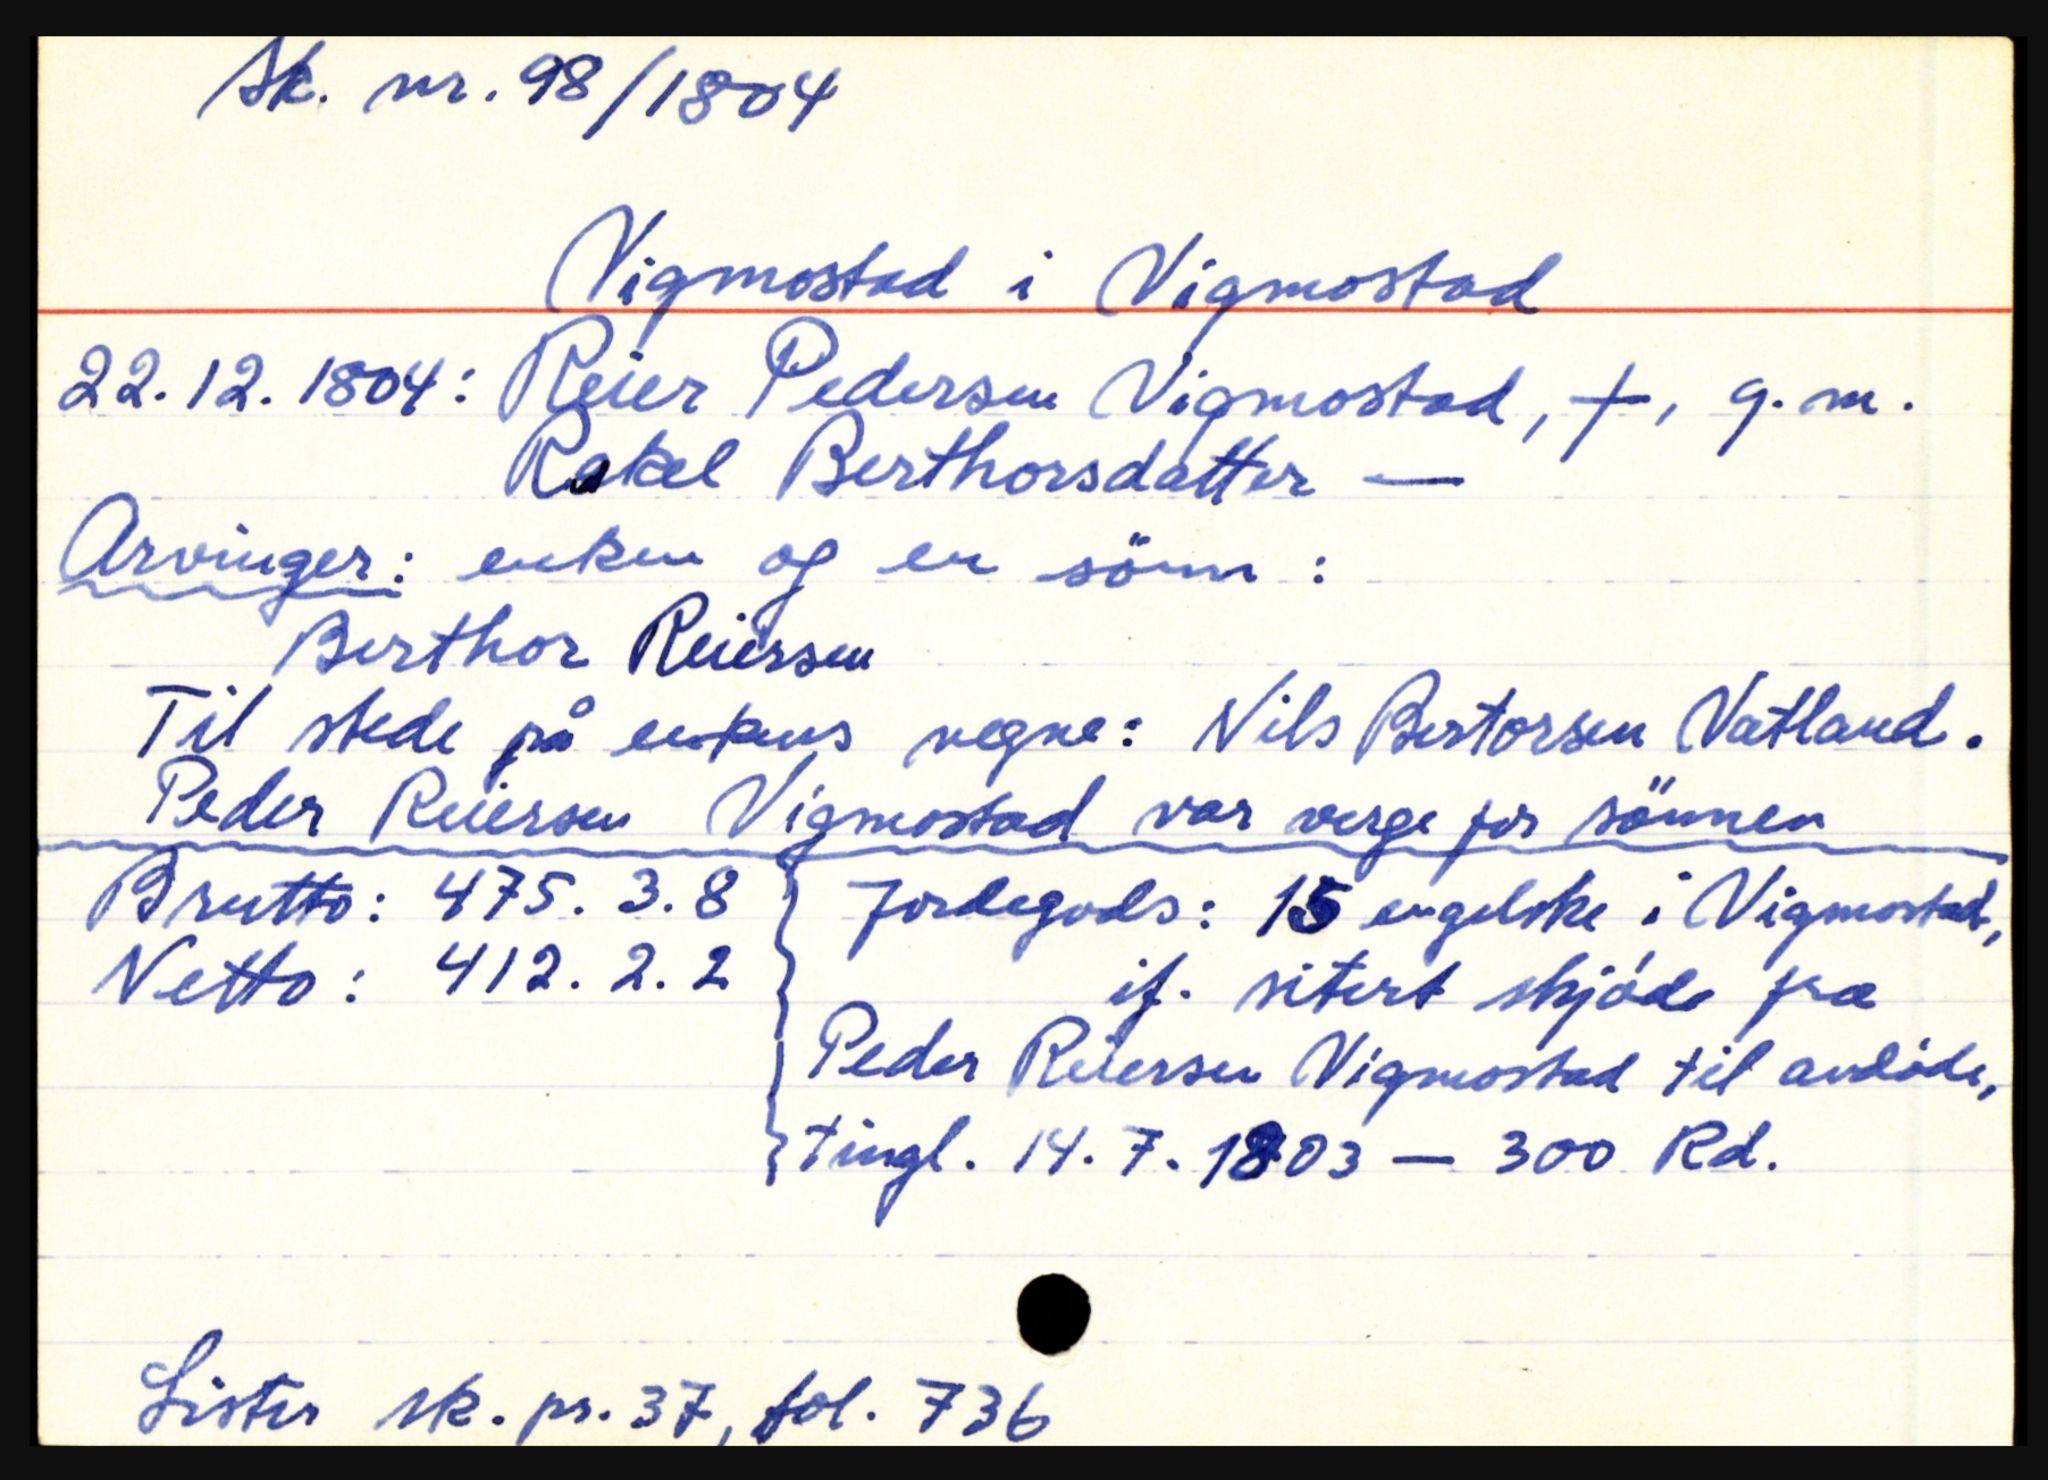 Sk. nr. 98/1804
Vigmostad i Vigmostad
22.12.1804: Reier Pedersen Vigmostad, +, g.m.
Rakel Berthorsdatter —
Arvinger: enken og en sönn:
Berthor Reiersen
Til stede på enkens vegne: Nils Bertorsen Vatland.
Peder Reiersen Vigmostad var verge for sönnen
Brutto: 475. 3. 8
Netto: 412. 2. 2
Jordegods: 15 engelske i Vigmostad,
if. sitert skjöde fra
Peder Reiersen Vigmostad til avdöde,
tingl. 14. 7. 1803 — 300 Rd.
Lister sk. pr. 37, fol. 736